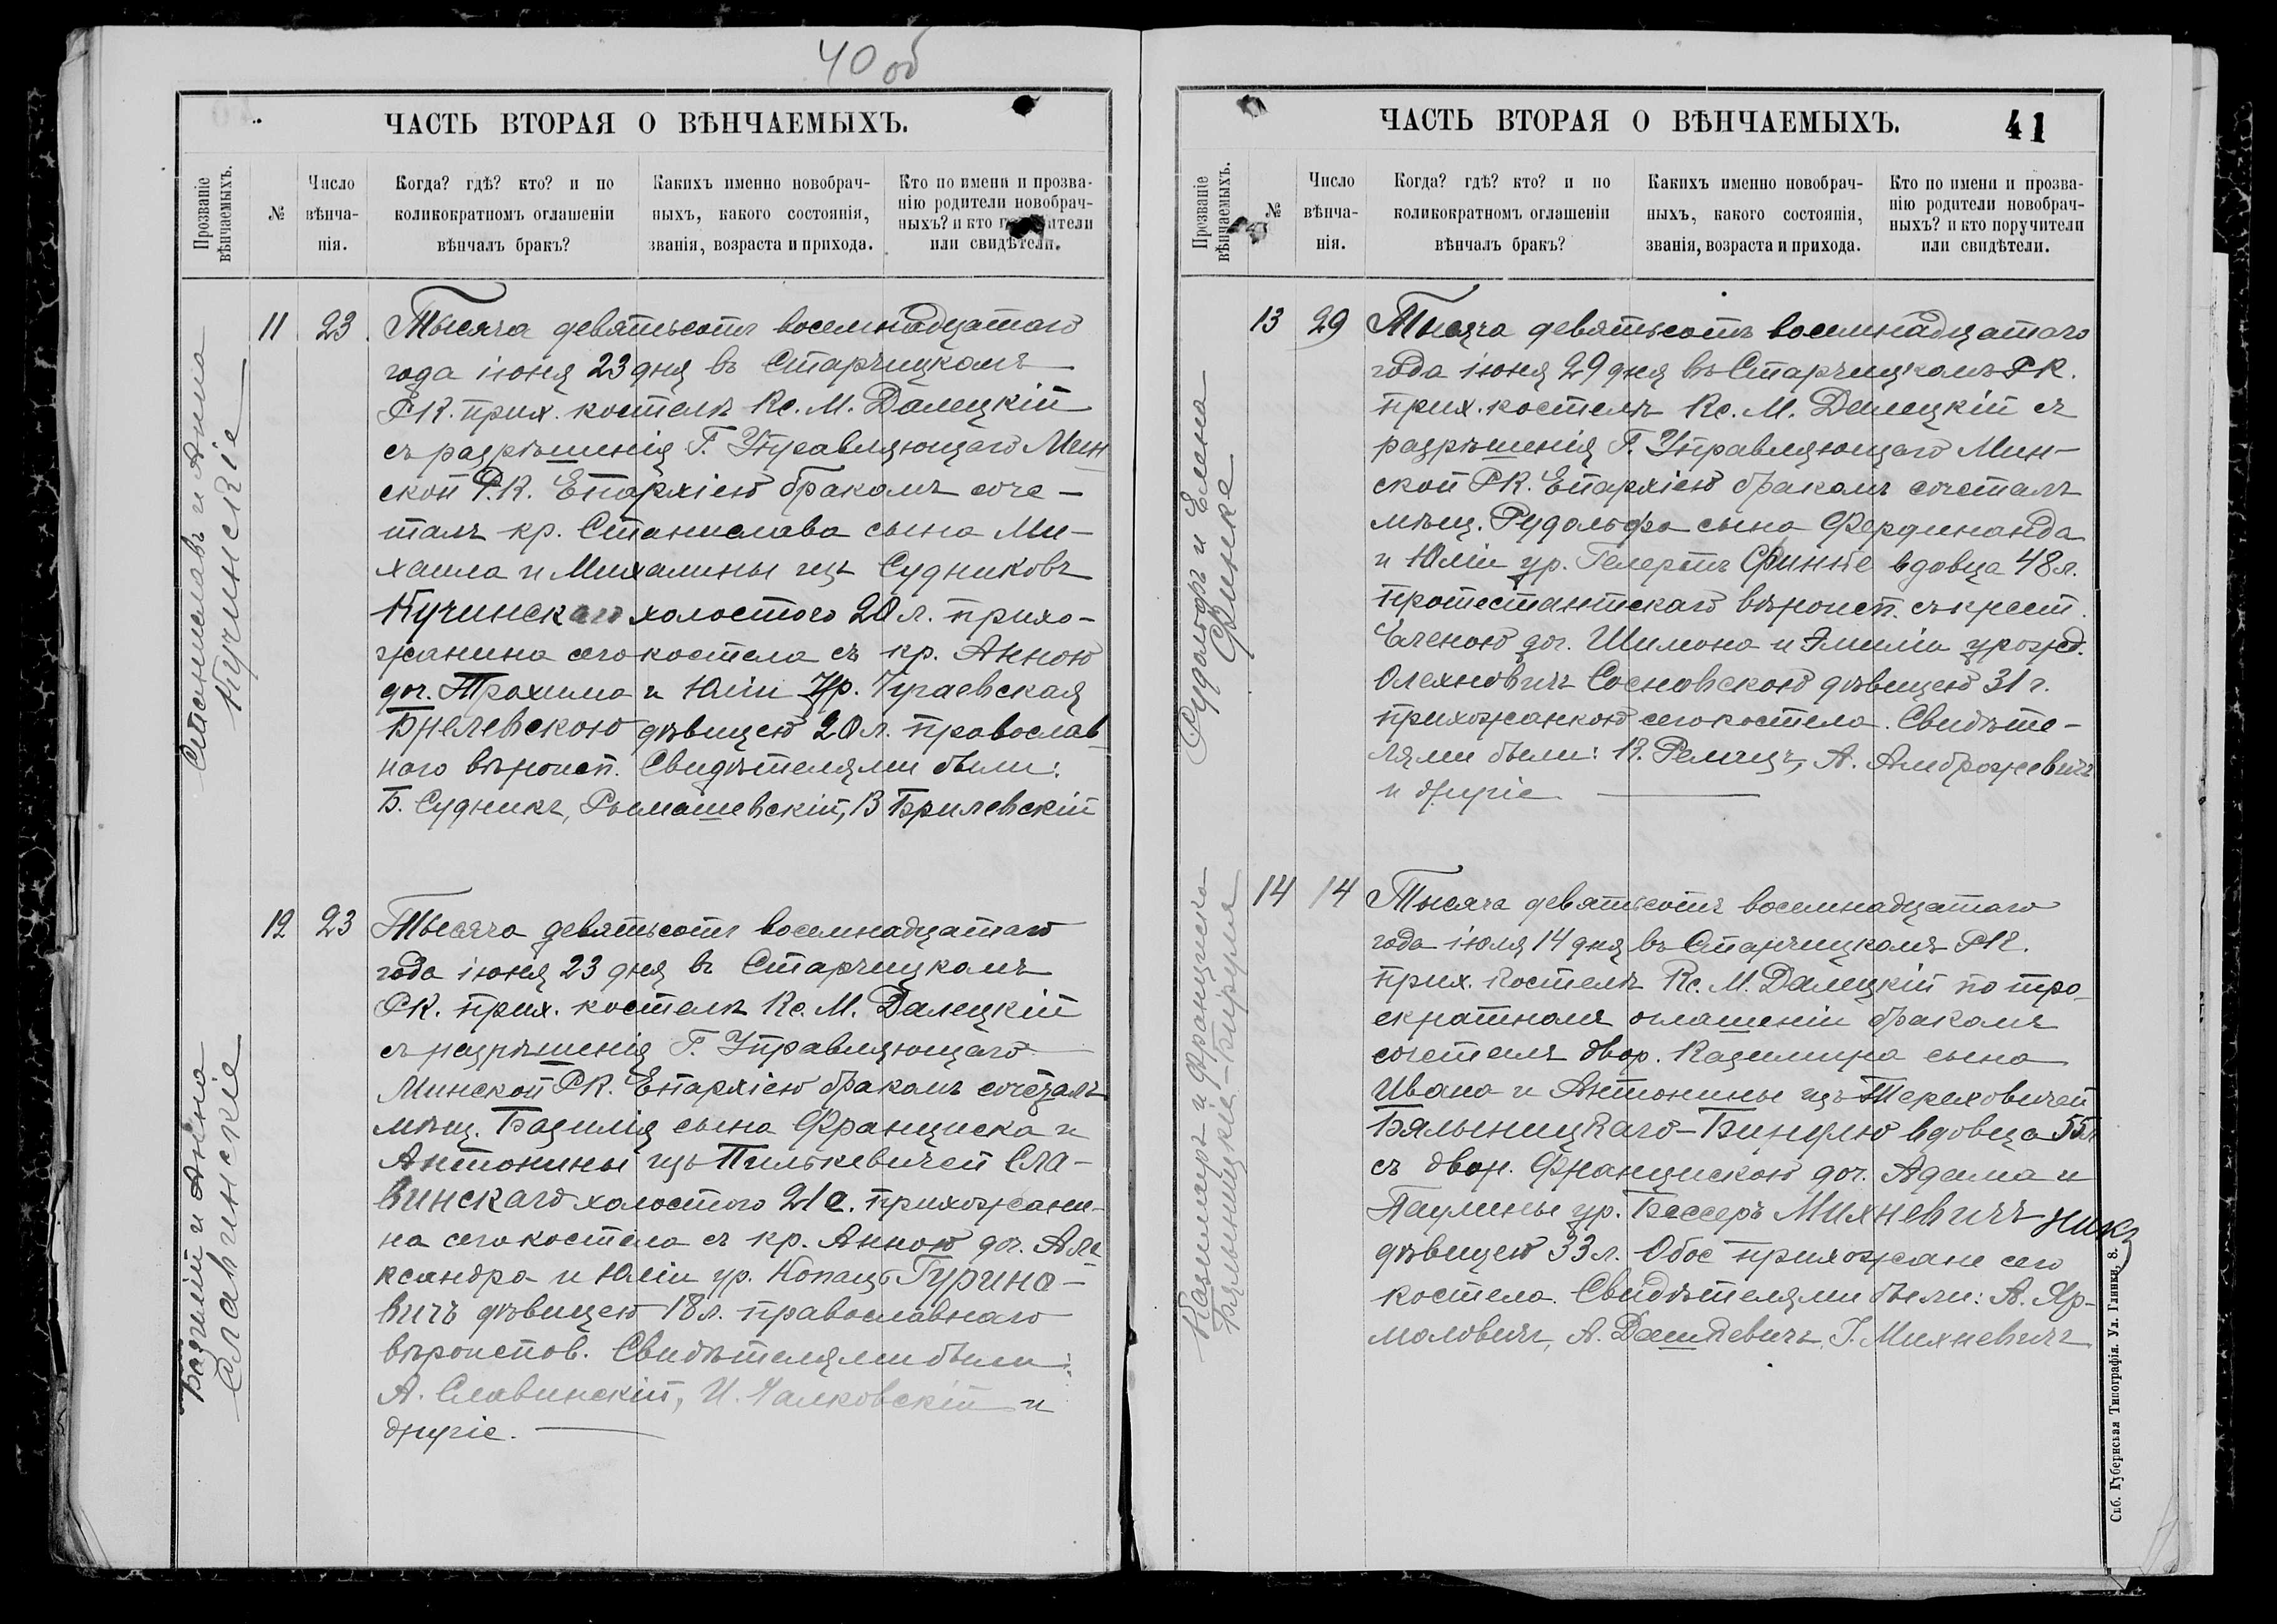 40 об
ЧАСТЬ ВТОРАЯ О ВѢНЧАЕМЫХЪ.
Прозваніе вѣнчаемыхъ.
№
Число вѣнча-нія.
Когда? гдѣ? кто? и по коликократномъ оглашеніи вѣнчалъ бракъ?
Какихъ именно новобрач-ныхъ, какого состоянія, званія, возраста и прихода.
Кто по имени и прозва-нію родители новобрач-ныхъ? и кто поручители или свидѣтели.
Станиславъ и Анна
Кучинскіе
11 23 Тысяча девятьсотъ восемнадцатаго
года іюня 23 дня въ Старчицкомъ
РК. прих. костелѣ Кс. М. Далецкій
съ разрѣшенія Г. Управляющаго Мин
ской Р.К. Епархіею бракомъ соче-
талъ кр. Станислава сына Ми-
хаила и Михалины изъ Судниковъ
Кучинскаго холостого 20 л. прихо-
жанина сего костела съ кр. Анною
доч. Трахима и Юліи Ур. Чураевская
Брилевскою дѣвицею 20 л. православ
наго вѣроисп. Свидѣтелями были:
Б. Судникъ, Рымашевскій, В Брилевскій
Базилій и Анна
Славинскіе
12 23 Тысяча девятьсотъ восемнадцатаго
года іюня 23 дня въ Старчицкомъ
РК. прих. костелѣ Кс. М. Далецкій
съ разрѣшенія Г. Управляющаго
Минской РК. Епархіею бракомъ сочеталъ
мѣщ. Базилія сына Франциска и
Антонины изъ Пилькевичей Сла-
винскаго холостого 21 г. прихожани-
на сего костела съ кр. Анною доч. Але
ксандра и Юліи ур. Копацъ Гурино-
вичъ дѣвицею 18 л. православнаго
вѣроиспов. Свидѣтелями были:
А. Славинскій, И. Чалковскій и
другіе.
ЧАСТЬ ВТОРАЯ О ВѢНЧАЕМЫХЪ.
41
Прозваніе вѣнчаемыхъ.
№
Число вѣнча-нія.
Когда? гдѣ? кто? и по коликократномъ оглашеніи вѣнчалъ бракъ?
Какихъ именно новобрач-ныхъ, какого состоянія, званія, возраста и прихода.
Кто по имени и прозва-нію родители новобрач-ныхъ? и кто поручители или свидѣтели.
Рудольфъ и Елена
Финке
13 29 Тысяча девятьсотъ восемнадцатаго
года іюня 29 дня въ Старчицкомъ РК.
прих. костелѣ Кс. М. Далецкій съ
разрѣшенія Г. Управляющаго Мин-
ской РК. Епархіею бракомъ сочеталъ
мѣщ. Рудольфа сына Фердинанда
и Юліи ур. Гелертъ Финке вдовца 48 л.
протестантскаго вѣроисп. съ крест.
Еленою доч. Шимона и Эмиліи урожд.
Олехновичъ Сосновскою дѣвицею 31 г.
прихожанкою сего костела. Свидѣте-
лями были: К. Ремицъ, А. Амброжевичъ
и другіе
Казимиръ и Франциска
Бялыницкіе-Бируля
14 14 Тысяча девятьсотъ восемнадцатаго
года іюля 14 дня въ Старчицкомъ РК.
прих. костелѣ Кс. М. Далецкій по тро-
екратномъ оглашеніи бракомъ
сочеталъ двор. Казимира сына
Ивана и Антонины изъ Тереховичей
Бялыницкаго-Бирулю вдовца 55 л
съ двор. Францискою доч. Адама и
Паулины ур. Бессеръ Михневичъ
дѣвицею 33 л. Обое прихожане сего
костела. Свидѣтелями были: А. Яр-
моловичъ, А. Дашкевичъ, І. Михневичъ
Спб. Губернская Типографія. Ул. Глинки, 8.